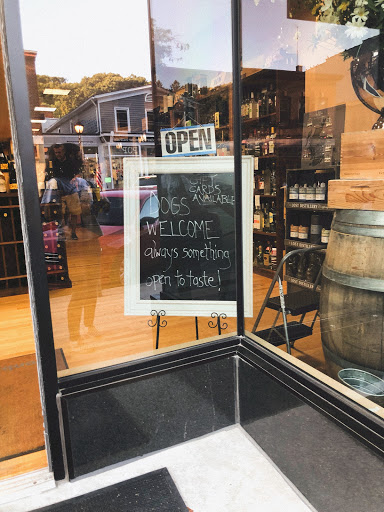 OPEN
GIFT
CARDS
AVAILABLE
DOGS
WELCOME
always something
open to taste!